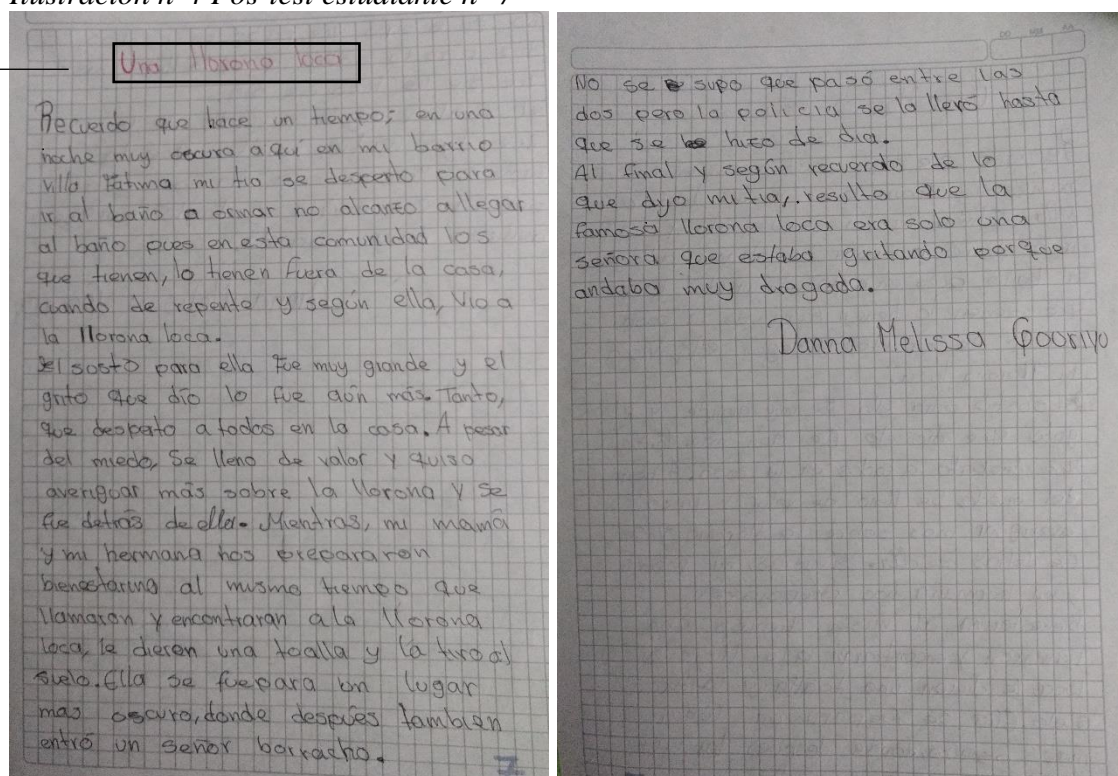 Ilustración n° 4 Pos-test estudiante n° 7
Una llorona loca
Recuerdo que hace un tiempo; en una
noche muy oscura aqui en mi barrio
villa Fatima mi tia se desperto para
ir al baño a orinar no alcanzo allegar
al baño pues en esta comunidad los
que tienen, lo tienen fuera de la casa,
cuando de repente y según ella, vio a
la llorona loca.
El susto para ella fue muy grande y el
grito que dio lo fue aún más. Tanto,
que desperto a todos en la casa. A pesar
del miedo, Se lleno de valor y quiso
averiguar más sobre la llorona y se
fue detrás de ella. Mientras, mi mamá
y mi hermana nos prepararon
bienestarina al mismo tiempo que
llamaron y encontraran ala llorona
loca, le dieron una toalla y la tiro al
suelo. Ella se fuepara un lugar
mas oscuro, donde después tambien
entró un señor borracho.
7
No se supo que pasó entre las
dos pero la policia se la llevó hasta
que se hizo de dia.
Al final y según recuerdo de lo
que dyo mi tia, resulto que la
famosa llorona loca era solo una
señora que estaba gritando porque
andaba muy drogada.
Danna Melissa